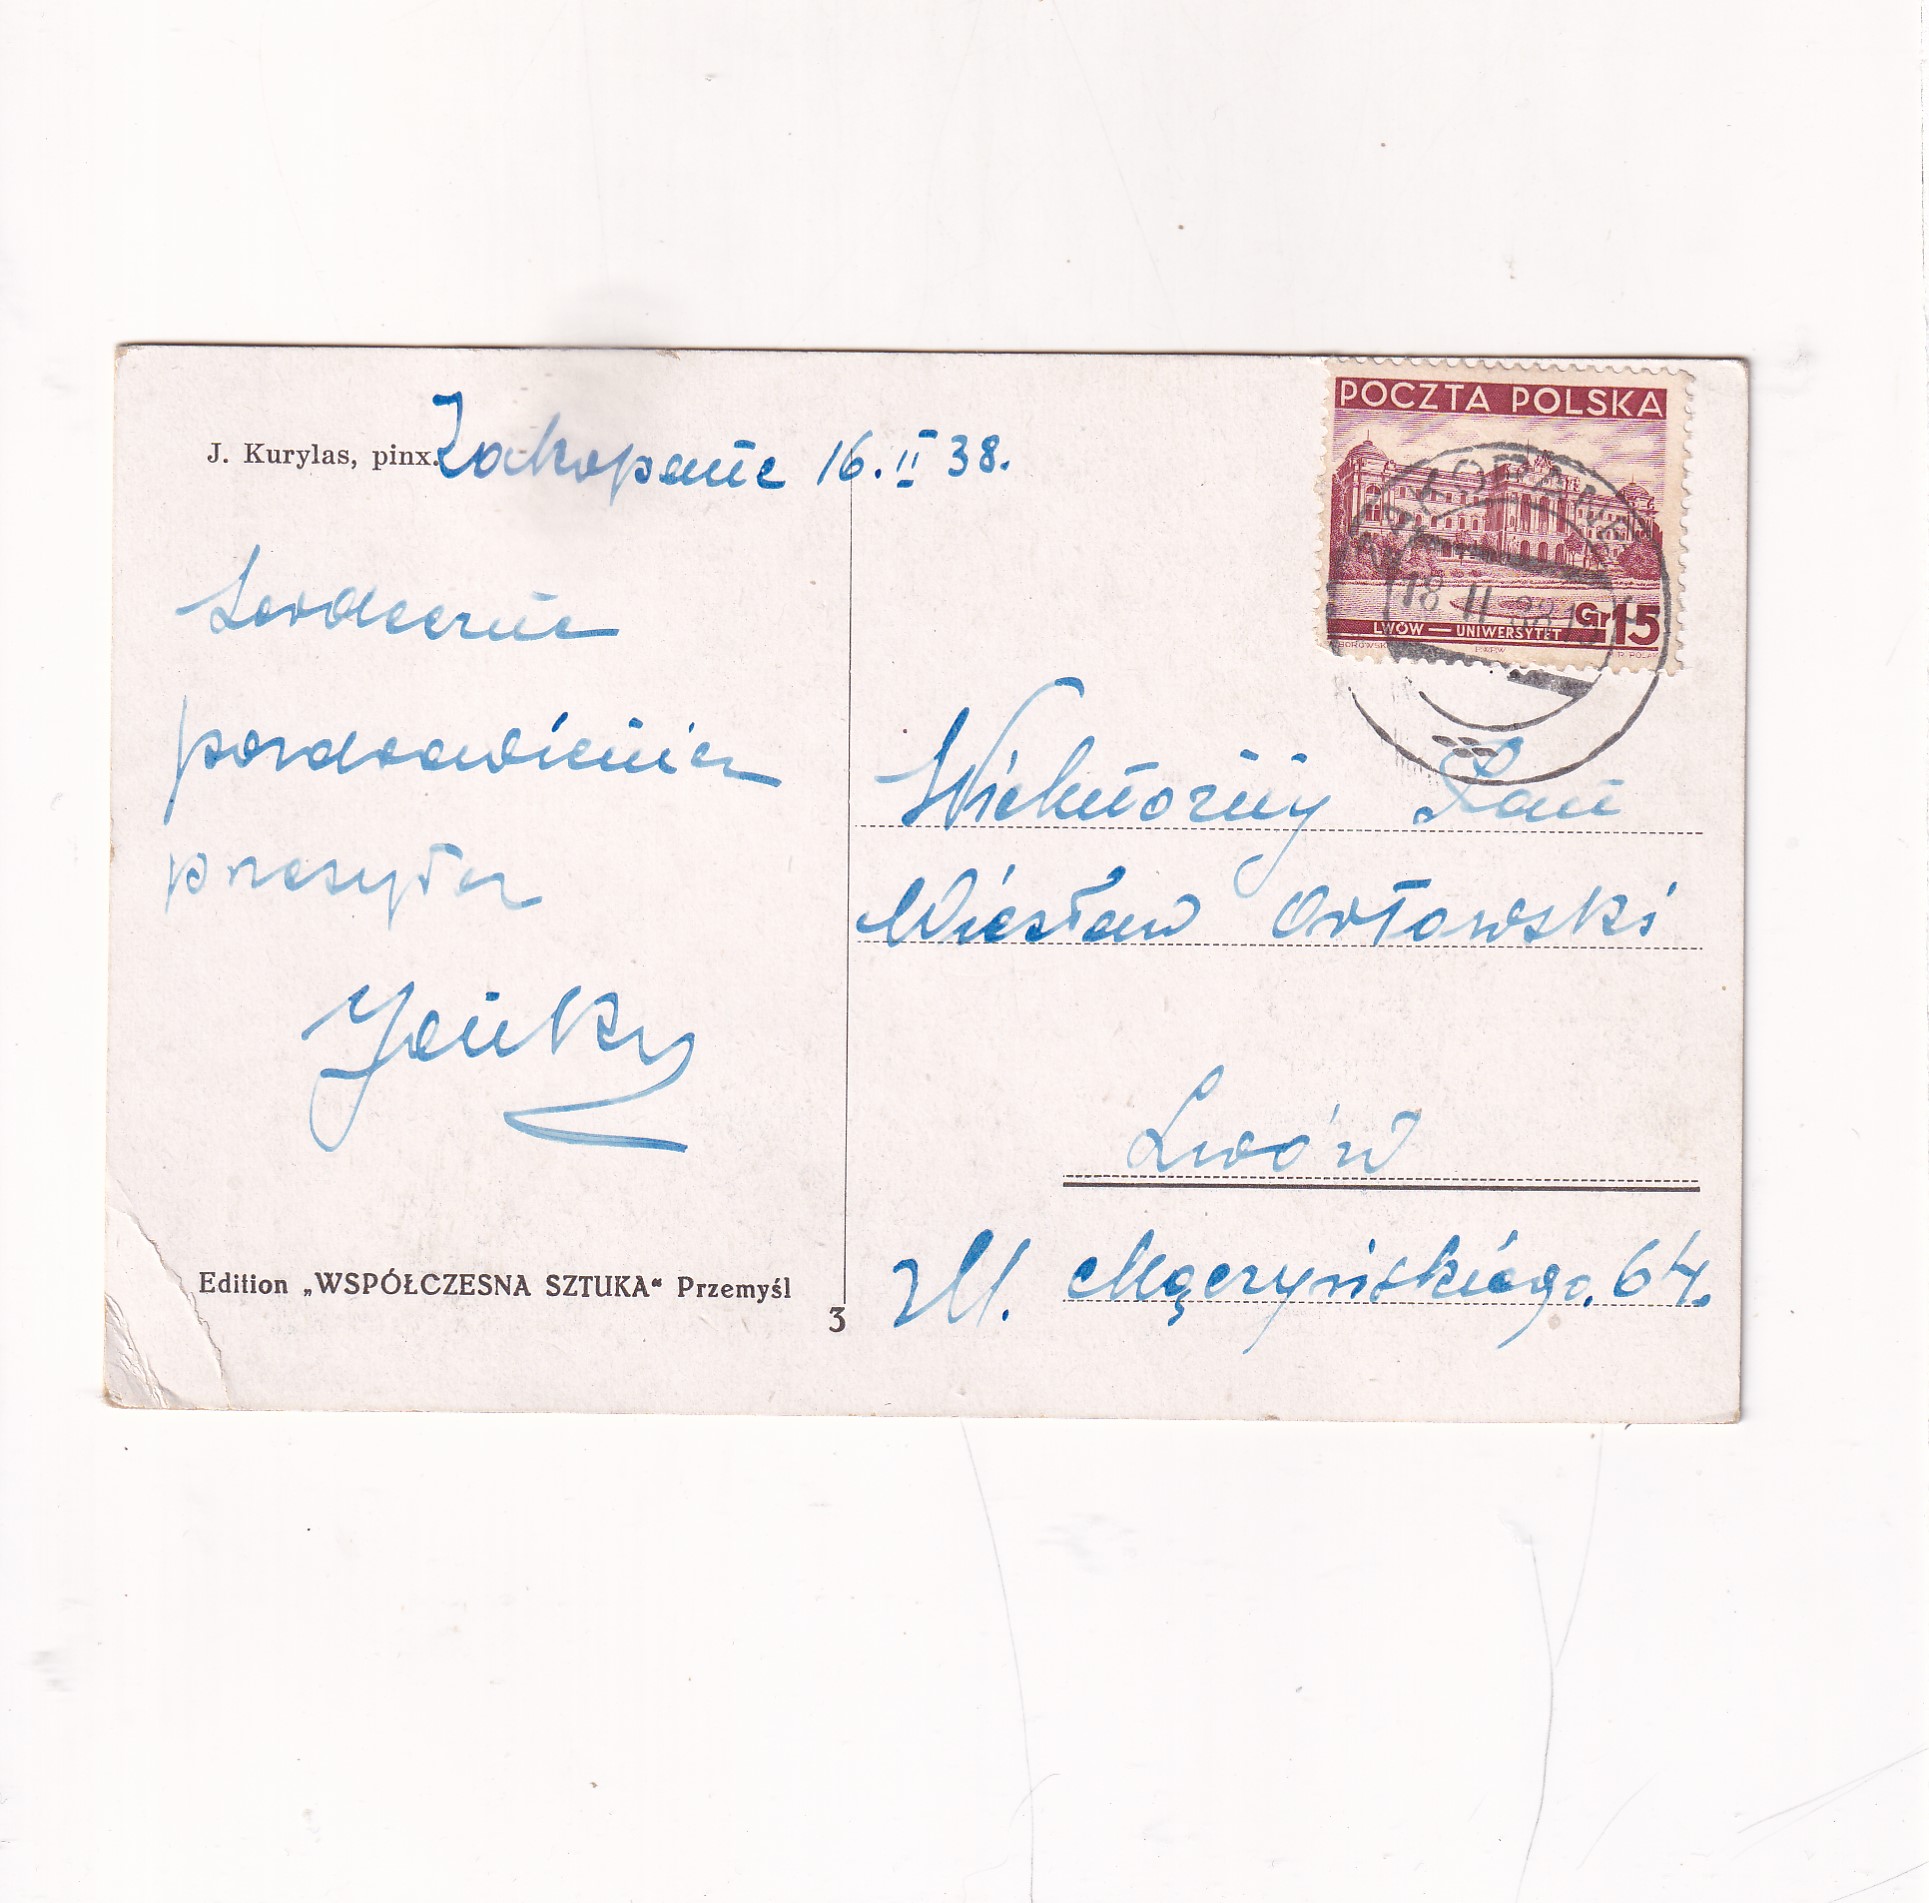 J. Kurylas, pinx.
Zakopane 16. II 38.
Serdeczne
pozdrowienia
przesyła
POCZTA POLSKA
18 II 38
Gr 15
LWÓW — UNIWERSYTET
Wielmożny Pan
Wiesław Orłowski
Lwów
Ul. Mączyńskiego. 64.
Edition „WSPÓŁCZESNA SZTUKA“ Przemyśl
3